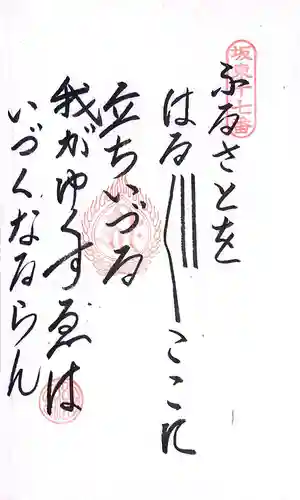 坂東十七番
ふるさとを
はる〴〵ここに
立ちいづる
我がゆくすゑは
いづくなるらん